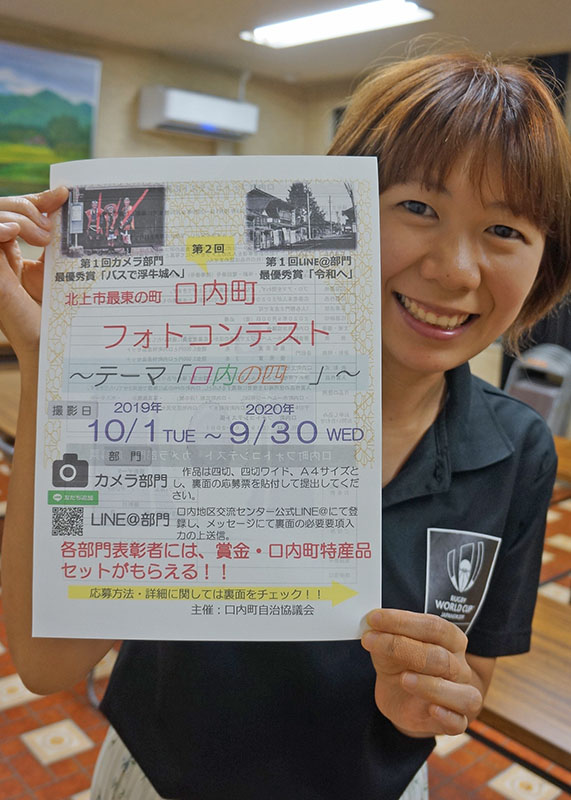 第1回カメラ部門
最優秀賞「バスで浮牛城へ」
第1回LINE@部門
最優秀賞「令和へ」
第2回
北上市最東の町 口内町
フォトコンテスト
~テーマ「口内の四 」~
撮影日 2019年 2020年
10/1 TUE ~ 9/30 WED
部 門
カメラ部門
作品は四切、四切ワイド、A4サイズとし、裏面の応募票を貼付して提出してください。
友だち追加
LINE@部門
口内地区交流センター公式LINE@にて登録し、メッセージにて裏面の必要要項入力の上送信。
各部門表彰者には、賞金・口内町特産品
セットがもらえる!!
応募方法・詳細に関しては裏面をチェック!!
主催:口内町自治協議会
RUGBY
WORLD CUP